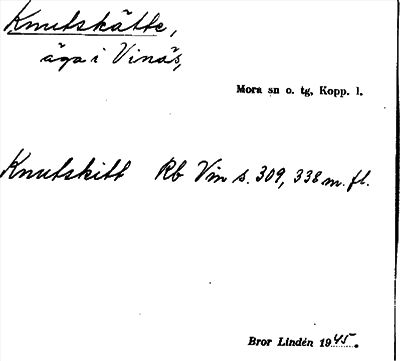 Knutskätte,
äga i Vinäs,
Mora sn o. tg, Kopp. l.
Knutskitt Rb Vin s. 309, 338 m. fl.
Bror Lindén 1945.